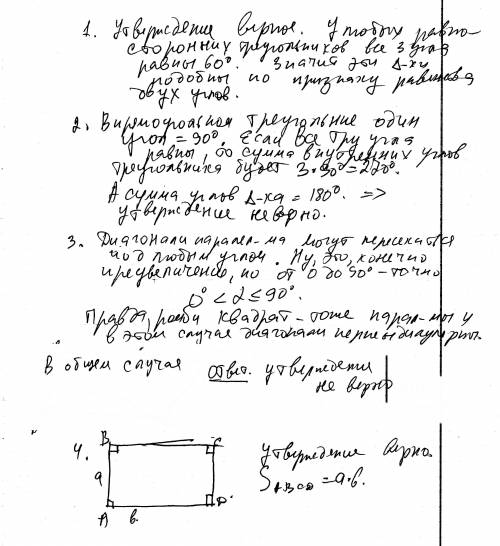 1. Утверждение верное. У любых равно-
сторонних треугольников все 3 угла
равны 60°. Значит эти Δ-ки
подобны по признаку равенства
двух углов.
2. В прямоугольном треугольнике один
угол = 90°. Если все три угла
равны, то сумма внутренних углов
треугольника будет 3·90° = 270°.
А сумма углов Δ-ка = 180°. =>
утверждение неверно.
3. Диагонали паралел-ма могут пересекаться
под любым углом. Ну, это, конечно
преувеличение, но от 0 до 90° - точно
0° < α ≤ 90°.
Правда, ромб и квадрат - тоже парал-мы и
в этом случае диагонали перпендикулярны.
В общем случае ответ. утверждение
не верно
4. B C
a
A в. D
утверждение верно.
S ABCD = a·b.